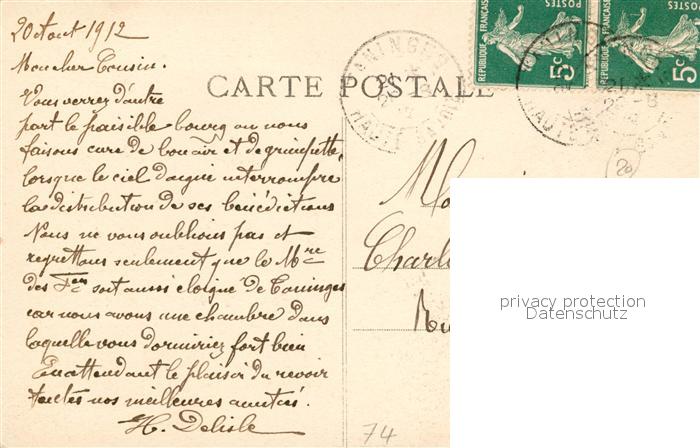 20 Aout 1912
Mon cher Cousin.
Vous verrez d'autre
part le paisible bourg ou nous
faisons cure de bon air et de grimpette,
lorsque le ciel daigne interrompre
la distribution de ses bénédictions
Nous ne vous oublions pas et
regrettons seulement que le Mre
des Fces soit aussi eloigné de Taninges
car nous avons une chambre dans
laquelle vous dormiriez fort bien
En attendant le plaisir du revoir
toutes nos meilleures amitiés.
H. Delisle
CARTE POSTALE
TANINGES
HAUTE SAVOIE
REPUBLIQUE FRANÇAISE
POSTES
5c
REPUBLIQUE FRANÇAISE
POSTES
5c
Charl
Ru
privacy protection
Datenschutz
74